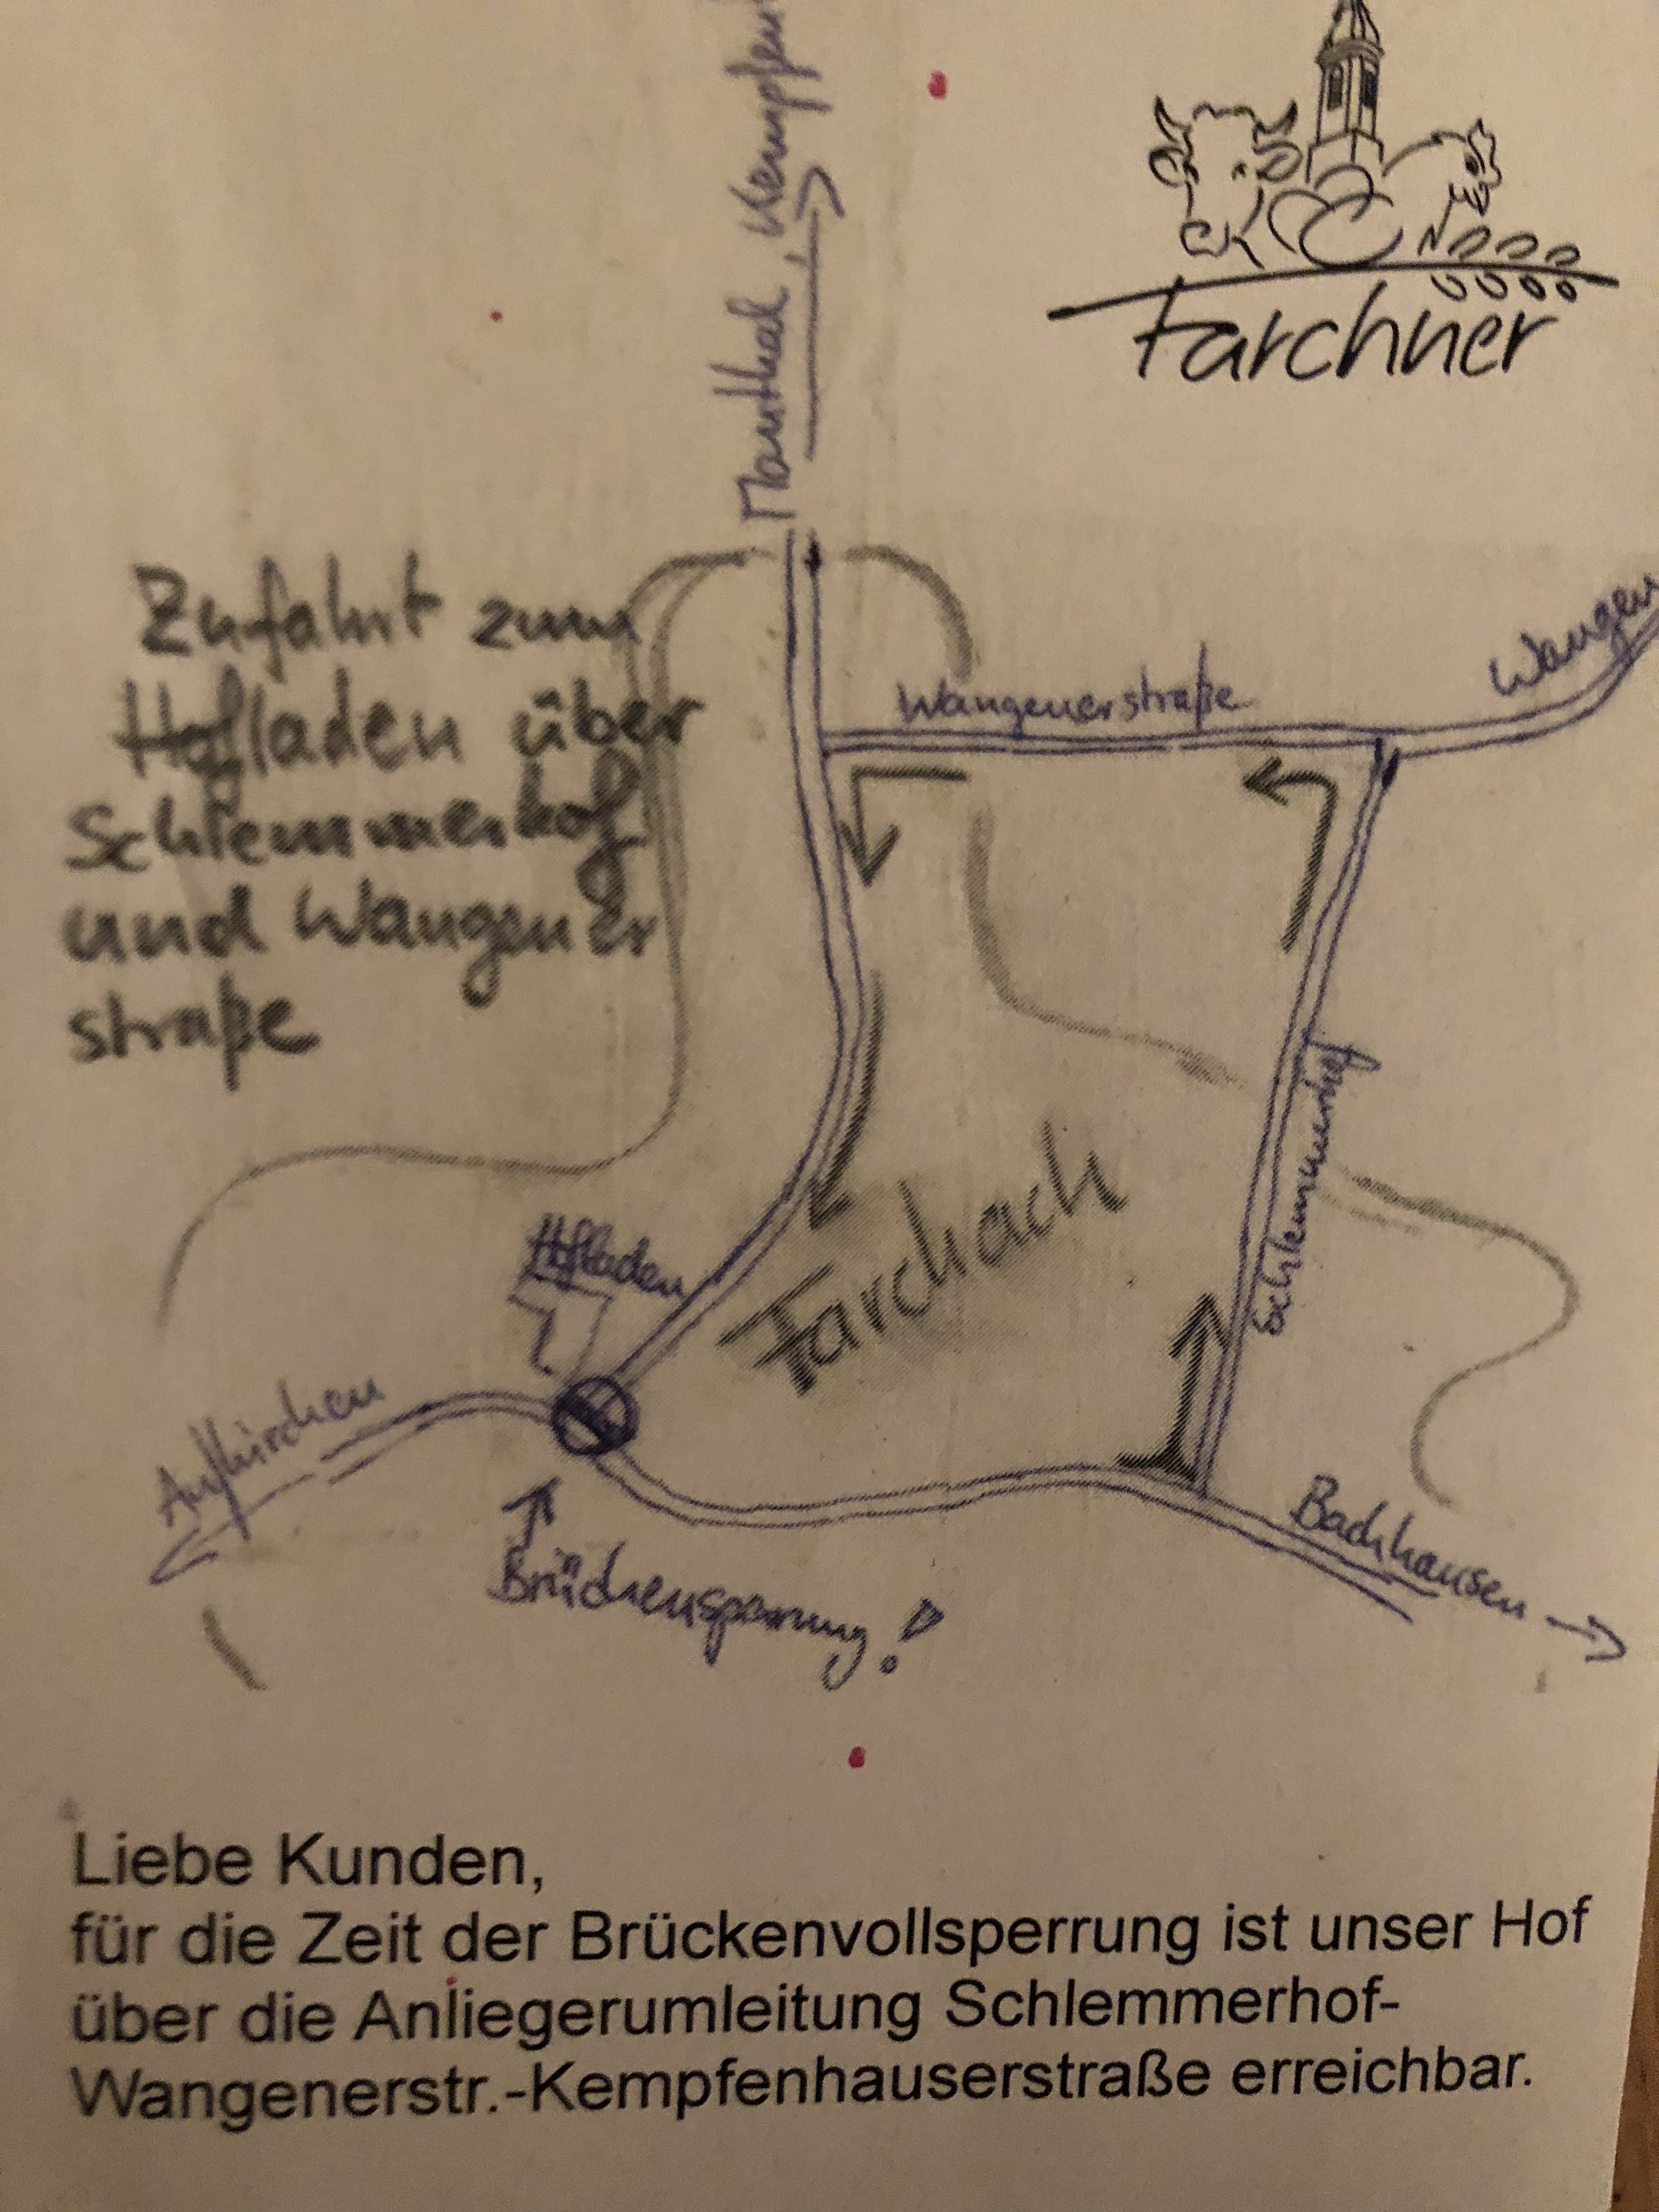 Manthal, Kempfen
Farchner
Zufahrt zum
Hofladen über
Schlemmerhof
und Wangener
straße
Wangenerstraße
Wangen
Schlemmerhof
Farchach
Hofladen
Aufkirchen
Brückensperrung!
Bachhausen
Liebe Kunden,
für die Zeit der Brückenvollsperrung ist unser Hof
über die Anliegerumleitung Schlemmerhof-
Wangenerstr.-Kempfenhauserstraße erreichbar.